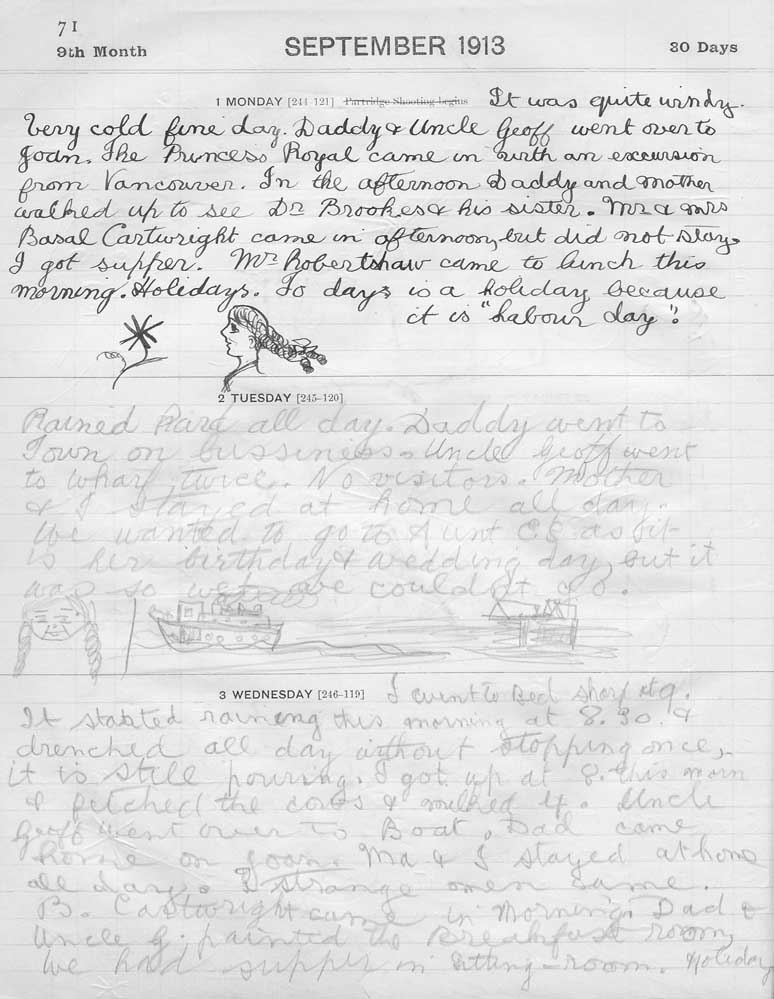 71
9th Month
SEPTEMBER 1913
30 Days
1 MONDAY [244-121] Partridge Shooting begins It was quite windy.
Very cold fine day. Daddy & Uncle Geoff went over to
Joan. The Princess Royal came in with an excursion
from Vancouver. In the afternoon Daddy and Mother
walked up to see Dr Brookes & his sister. Mr & Mrs
Basal Cartwright came in afternoon, but did not stay.
I got supper. Mr Robertshaw came to lunch this
morning. Holidays. To days is a holiday because
it is "labour day".
2 TUESDAY [245-120]
Rained hard all day. Daddy went to
Town on bussiness. Uncle Geoff went
to wharf twice. No visitors. Mother
& I stayed at home all day.
We wanted to go to Aunt as it
is her birthday & wedding day, but it
was so wet we couldn't go.
3 WEDNESDAY [246-119] I went to Bed sharp at 9.
It started raining this morning at 8.30. &
drenched all day without stopping once,
it is still pouring. I got up at 8. this morn
& fetched the cows & milked 4. Uncle
Geoff went over to Boat. Dad came
home on Joan. Ma & I stayed at home
all day. 2 strange men came.
B. Cartwright came in Morning. Dad &
Uncle G. painted the Breakfast room,
We had supper in Sitting-room. Holiday